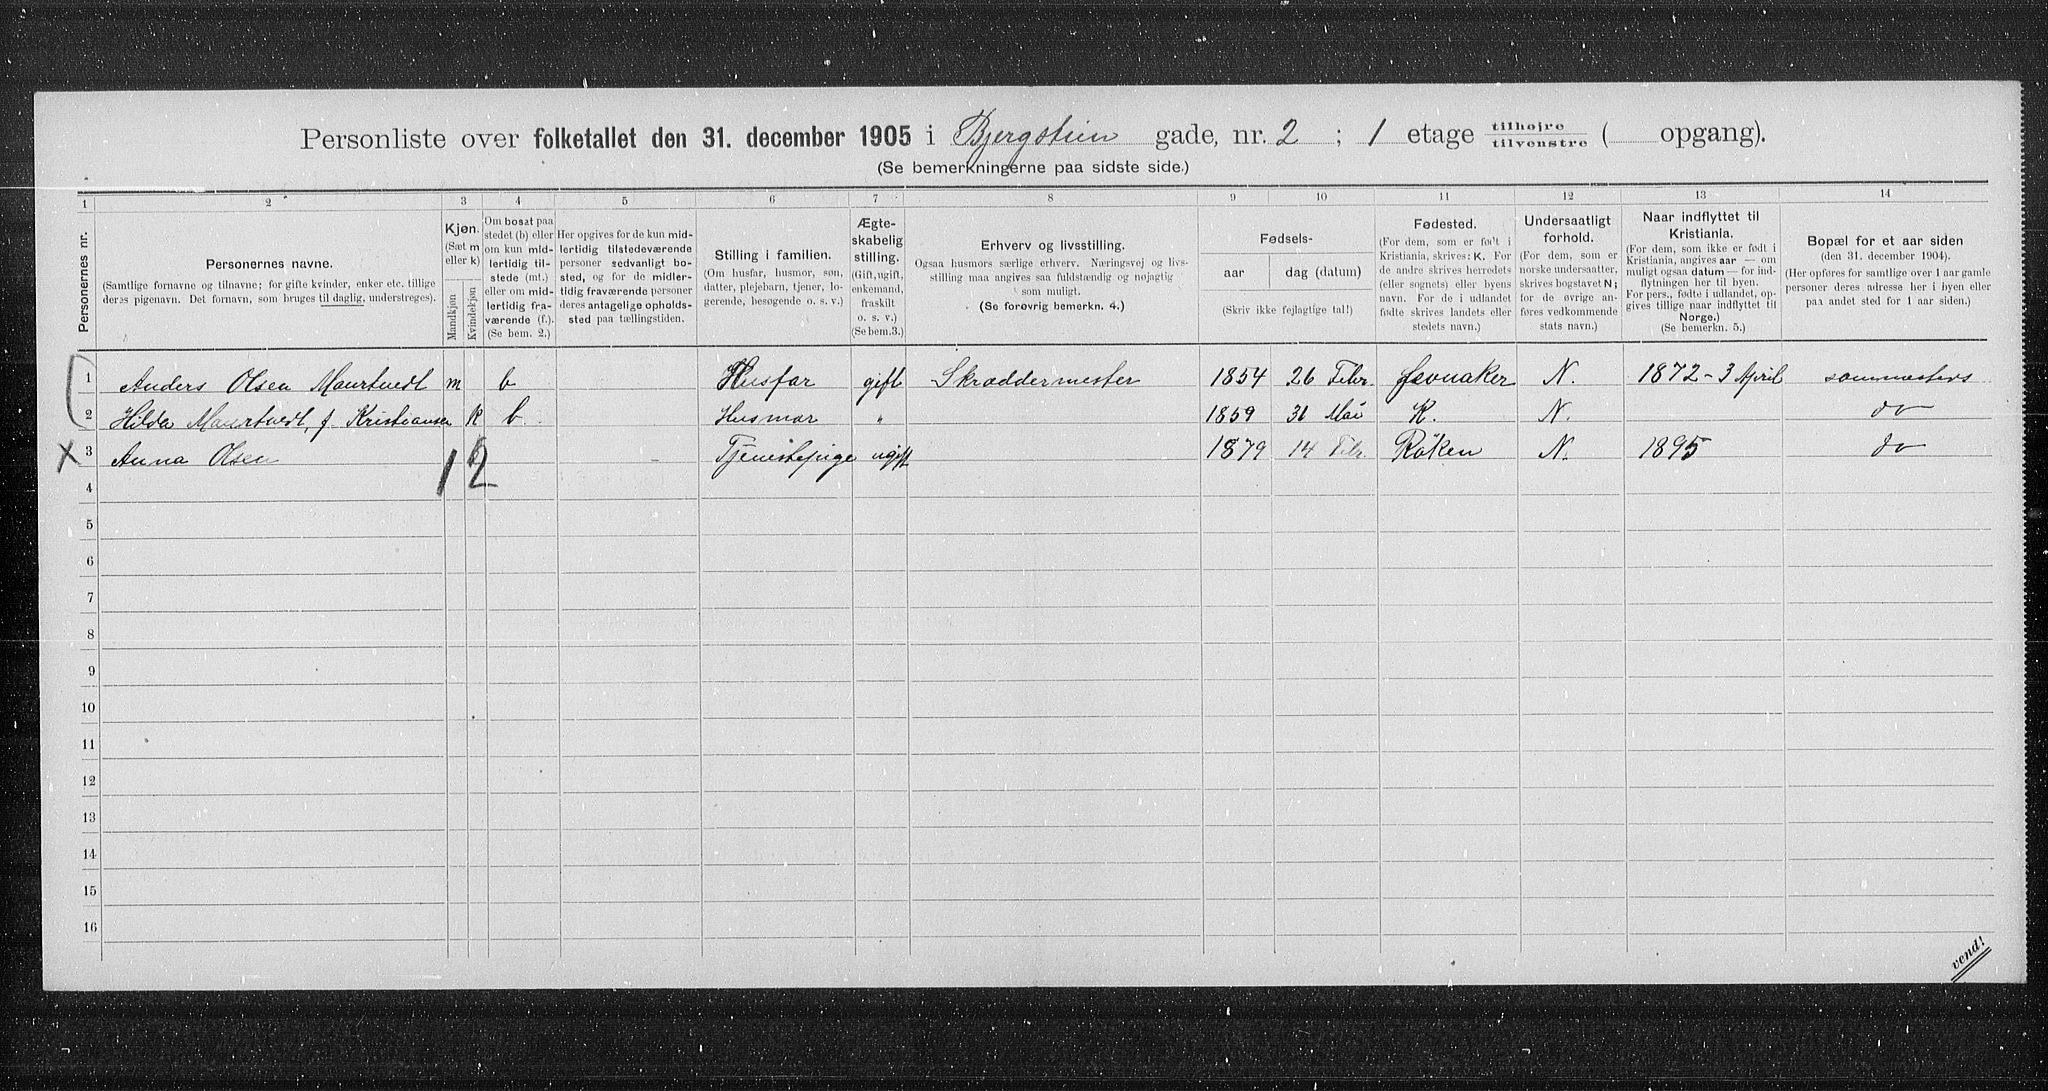 Personliste over folketallet den 31. december 1905 i Bjergstien gade, nr. 2 ; 1 etage tilhøjre tilvenstre ( opgang).
(Se bemerkningerne paa sidste side.)
1 2 3 4 5 6 7 8 9 10 11 12 13 14
Personernes nr.
Personernes navne.
(Samtlige fornavne og tilnavne; for gifte kvinder, enker etc. tillige
deres pigenavn. Det fornavn, som bruges til daglig, understreges).
Kjøn.
(Sæt m
eller k)
Mandkjøn
Kvindekjøn
Om bosat paa
stedet (b) eller
om kun mid-
lertidig til-
stede (mt.)
eller om mid-
lertidig fra-
værende (f.).
(Se bem. 2.)
Her opgives for de kun mid-
lertidig tilstedeværende
personer sedvanligt bo-
sted, og for de midler-
tidig fraværende personer
deres antagelige opholds-
sted paa tællingstiden.
Stilling i familien.
(Om husfar, husmor, søn,
datter, plejebarn, tjener, lo-
gerende, besøgende o. s. v.)
Ægte-
skabelig
stilling.
(Gift, ugift,
enkemand,
fraskilt
o. s. v.)
(Se bem.3.)
Erhverv og livsstilling.
Ogsaa husmors særlige erhverv. Næringsvej og livs-
stilling maa angives saa fuldstændig og nøjagtig
som muligt.
(Se forøvrig bemerkn. 4.)
Fødsels-
aar dag (datum)
(Skriv ikke fejlagtige tal!)
Fødested.
(For dem, som er født i
Kristiania, skrives: K. For
de andre skrives herredets
(eller sognets) eller byens
navn. For de i udlandet
fødte skrives landets eller
stedets navn.)
Undersaatligt
forhold.
(For dem, som er
norske undersaatter,
skrives bogstavet N;
for de øvrige an-
føres vedkommende
stats navn.)
Naar indflyttet til
Kristiania.
(For dem, som ikke er født i
Kristiania, angives aar — om
muligt ogsaa datum — for ind-
flytningen her til byen.
For pers., fødte i udlandet, op-
gives tillige naar indflyttet til
Norge.)
(Se bemerkn. 5.)
Bopæl for et aar siden
(den 31. december 1904).
(Her opføres for samtlige over 1 aar gamle
personer deres adresse her i byen eller
paa andet sted for 1 aar siden.)
1 Anders Olsen Maurtvedt m b Husfar gift Skræddermester 1854 26 Febr. Jevnaker N. 1872 - 3 April sammesteds
2 Hilda Maurtvedt, f. Kristiansen k b. Husmor " 1859 31 Mai K. N. do
X 3 Anna Olsen Tjenestepige ugift 1879 14 Febr. Røken N. 1895 do
1 2
4
5
6
7
8
9
10
11
12
13
14
15
16
vend!